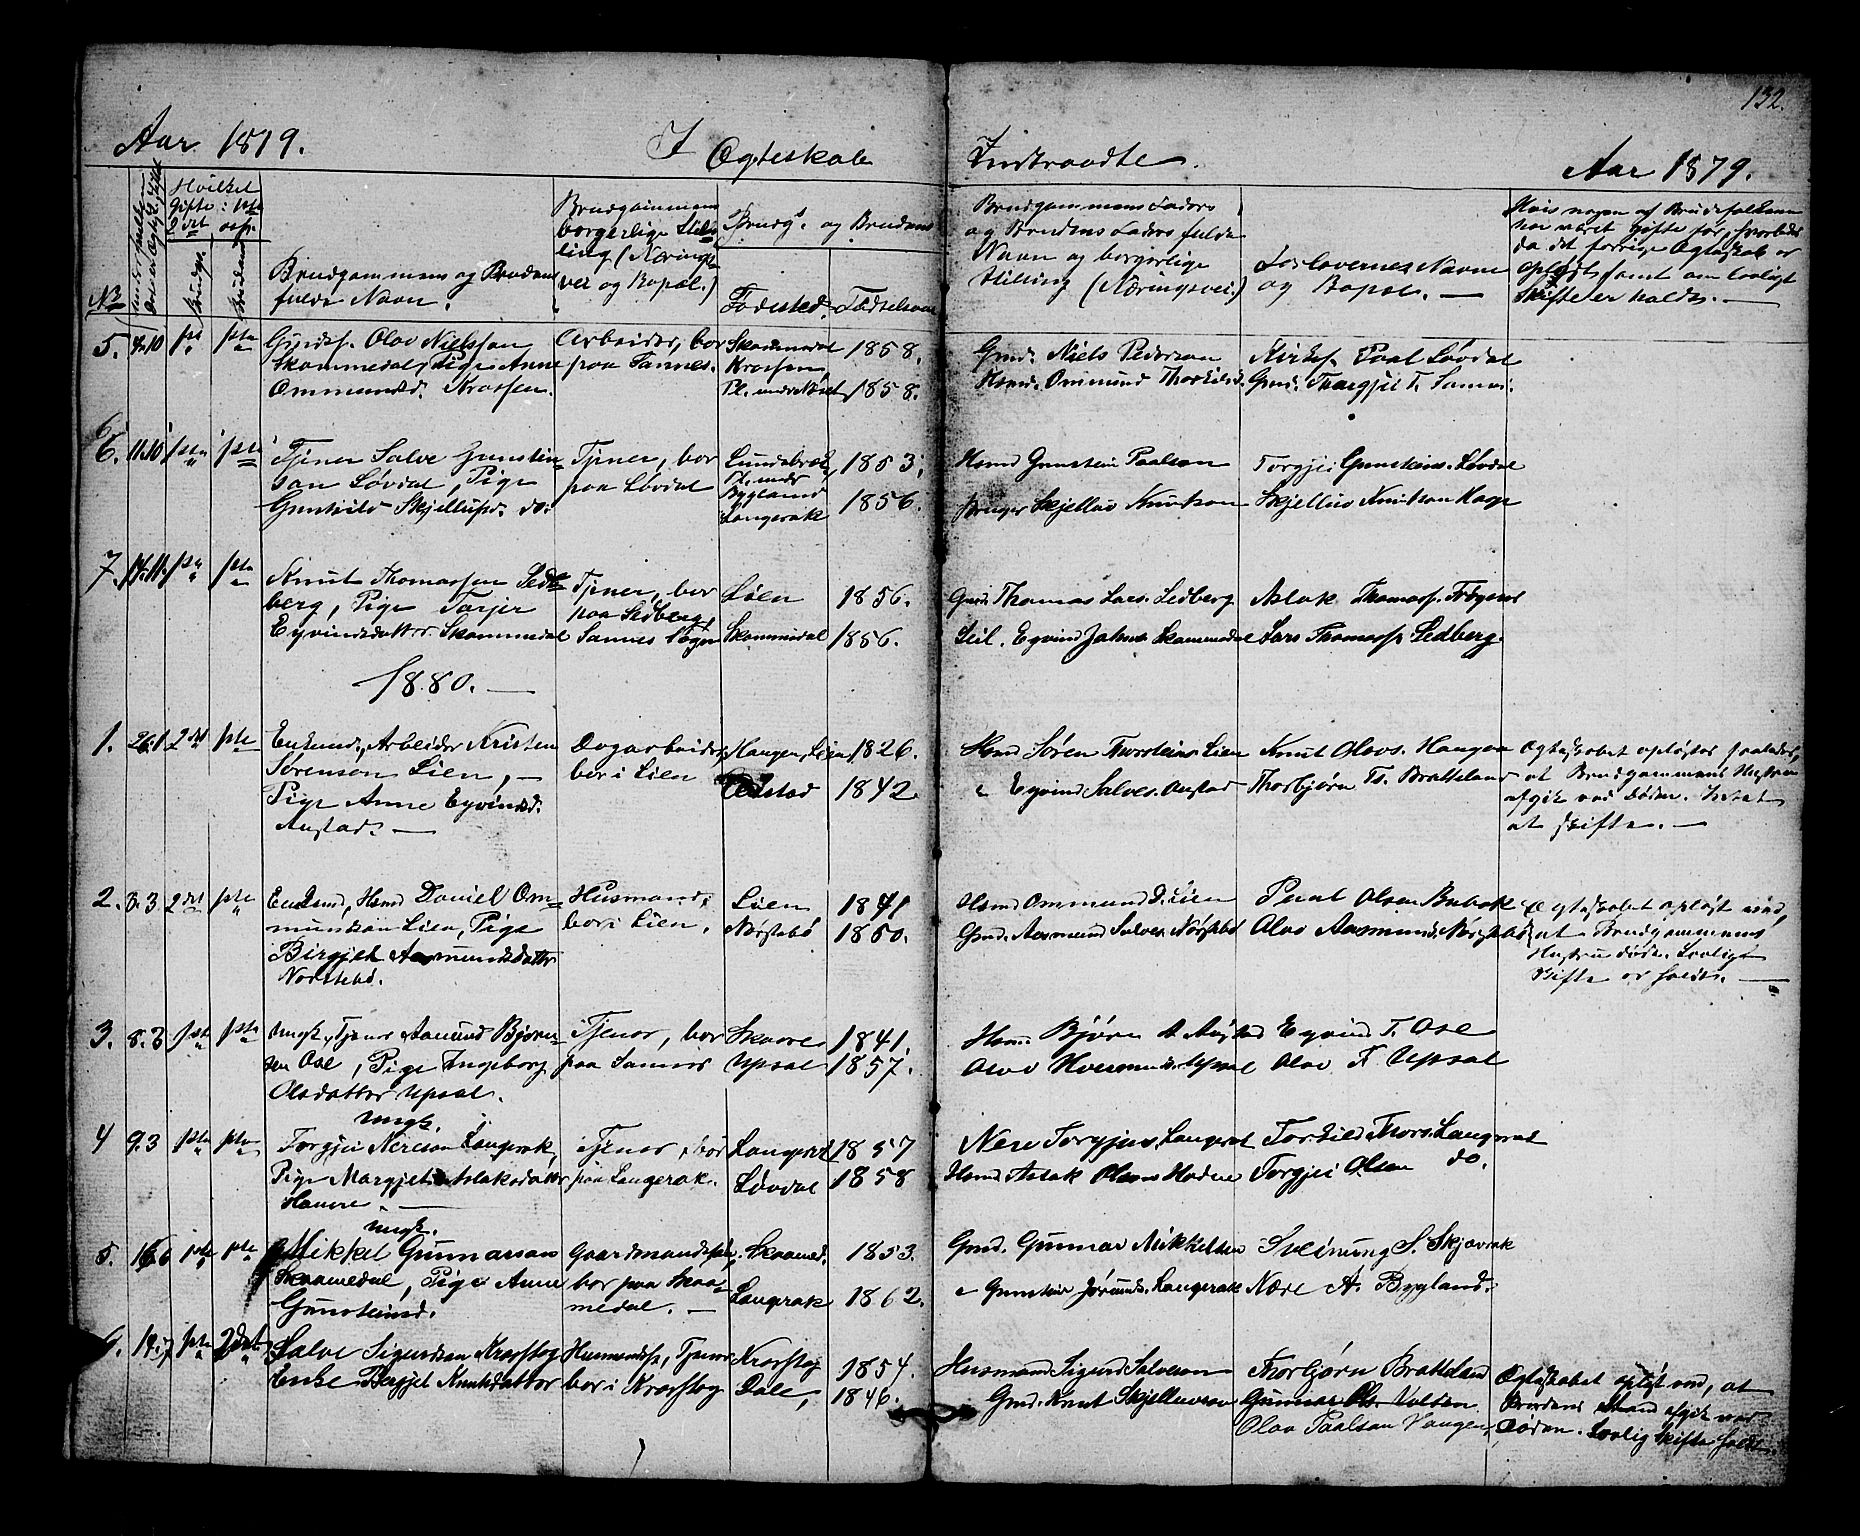 132.
Aar 1879. I Ægteskab Indtraadte. Aar 1879.
No
Hvilket
Gifte: 1ste
2det osv.
Brudg.
Bruden
Brudgommens og Brudens
fulde Navn.
Brudgommens
borgerlige Stil-
ling (Nærings-
vei og Bopæl.)
Brudgs og Brudens
Fødested. Fødselsaar
Brudgommens Faders
og Brudens Faders fulde
Navn og borgerlige
Stilling (Næringsvei.)
Forlovernes Navne
og Bopæl.
Hvis nogen af Brudefolkene
har været gifte før, hvorledes
da det forrige Ægteskab er
opløst, samt om lovligt
Skifte er holdt.
5. 4.10 1ste 1ste
Olav Nielsson
Skammedal, Pige Anne
Ommundsd. Krossen.
Arbeider, bor
paa Sannes.
Skammedal 1858.
Krossen,
Pl. under 1858.
Gmd. Niels Pederson
Hsmd. Ommund Thorkilds.
Kirkes. Paal Løvdal
Gmd. Thorgjei T. Sannes.
6. 11.10 1ste 1ste
Tjener Salve Gunstein-
son Løvdal, Pige
Gunhild Skjellusd. do.
Tjener, bor
paa Løvdal
Lundsbrok, 1853,
Pl. under
Bygland
Langerak 1856.
Hsmd Gunstein Paalson
Bruger Skjellus Knutson
Torgjei Gunsteins. Løvdal
Skjellus Knutson Hage
7. 14.11. 1ste 1ste
Knut Thomassen Sed-
berg, Pige Torjer
Eyvindsdatter Skammedal
Tjener, bor
paa Sedberg,
Sannes Sogn
Lien 1856.
Skammedal 1856.
Gmd. Thomas Lars. Sedberg
Leil. Eyvind Skammedal
Aslak Thomass. Frøysnes
Lars Thomass. Sedberg.
1880.
1. 26.1 2det 1ste
Enkemd., Arbeider Kristen
Sørenson Lien,
Pige Anne Eyvindsd.
Austad.
Dagarbeider,
bor i Lien
Haugen, Lien 1826.
Østad 1842.
Hsmd Søren Thorsteins. Lien
" Eyvind Salves. Austad
Knut Olavs. Haugen
Thorbjørn Ts. Bratteland
Ægteskabet opløstes saaledes,
at Brudgommens Hustru
afgik ved Døden. Intet
at skifte.
2. 3.3 2det 1ste
Enkemd, Hsmd Daniel Om-
mundson Lien, Pige
Birgjet Aasmundsdatter
Norstebø.
Husmand,
bor i Lien.
Lien 1841
Nørstebø 1850.
Hsmd Ommund D. Lien
Gmd. Aasmund Salves. Nørstebø
Peral Olsen Bubak
Olav Aasmunds. Nørstebø
Ægteskabet opløst ved,
at Brudgommens
Hustru døde. Lovligt
Skifte er holdt.
3. 8.3 1ste 1ste
Ungk., Tjener Aamund Bjørn-
sen Ose, Pige Ingeborg
Olsdatter Upsal.
Tjener, bor
paa Sannes
Skaare 1841.
Upsal 1857.
Hsmd. Bjørn A Austad
Olav Upsal
Eyvind T. Ose
Olav F. Upsal
4 9.3 1ste 1ste
Ungk.
Torgjei Nerison Langerak,
Pige Margjet Aslaksdatter
Havere.
Tjener, bor
paa Langerak.
Langerak 1857
Løvdal 1858
Nere Torgjus. Langerak
Hsmd. Aslak Olsen
Torkild Thors. Langerak
Torgjei Olsen do.
5. 16.6 1ste 1ste
Ungk.
Mikkel Gunnarson
Skaamedal, Pige Anne
Gunsteinsd.
Gaardmandssøn,
bor paa Skaa-
medal.
Skaamed. 1853.
Langerak 1862.
Gmd. Gunnar Mikkelsen
" Gunstein Jørunds. Langerak
Sveinung S. Skjævrak
Nære A. Bygland.
6. 14.7 1ste 2det
Salve Sigurdson Krosstog
Enke Bergjet Knutsdatter
Husmandss., Tjener
bor i Krosstog
Krosstog 1854.
Dale, 1846.
Husmand Sigurd Salveson
Gmd. Knut Skjelluvson
Thorbjørn Bratteland
Gunnar Ols. Valten
Olav Paalsan Haugen,
Ægteskabet opløst ved, at
Brudens Mand afgik ved
Døden. Lovlig Skifte holdt.